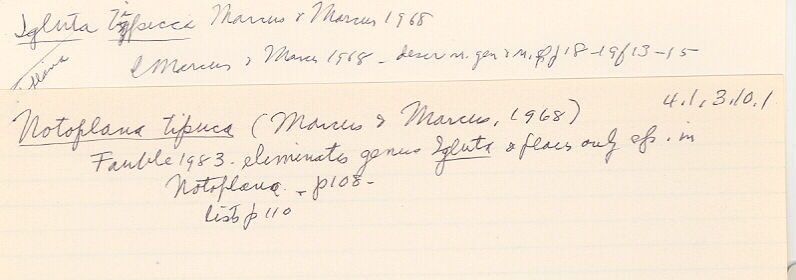 Igluta tipuca Marcus & Marcus 1968
plana
E Marcus & Marcus 1968 - descr n. gen & n. sp p 18-19 f 13-15
4.1, 3.10.1
Notoplana tipuca (Marcus & Marcus, 1968)
Faubel 1983. eliminates genus Igluta & places only sp. in
Notoplana - p108-
lists p 110